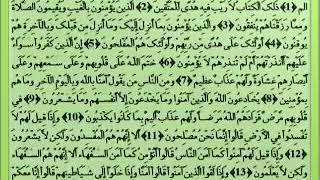 الم ﴿1﴾ ذلك الكتاب لا ريب فيه هدى للمتقين ﴿2﴾ الذين يؤمنون بالغيب ويقيمون الصلاة
ومما رزقناهم ينفقون ﴿3﴾ والذين يؤمنون بما أنزل إليك وما أنزل من قبلك وبالآخرة هم
يوقنون ﴿4﴾ أولئك على هدى من ربهم وأولئك هم المفلحون ﴿5﴾ إن الذين كفروا سواء
عليهم أأنذرتهم أم لم تنذرهم لا يؤمنون ﴿6﴾ ختم الله على قلوبهم وعلى سمعهم وعلى
أبصارهم غشاوة ولهم عذاب عظيم ﴿7﴾ ومن الناس من يقول آمنا بالله وباليوم الآخر وما هم
بمؤمنين ﴿8﴾ يخادعون الله والذين آمنوا وما يخدعون إلا أنفسهم وما يشعرون ﴿9﴾ في
قلوبهم مرض فزادهم الله مرضا ولهم عذاب أليم بما كانوا يكذبون ﴿10﴾ وإذا قيل لهم لا
تفسدوا في الأرض قالوا إنما نحن مصلحون ﴿11﴾ ألا إنهم هم المفسدون ولكن لا يشعرون
﴿12﴾ وإذا قيل لهم آمنوا كما آمن الناس قالوا أنؤمن كما آمن السفهاء ألا إنهم هم السفهاء
ولكن لا يعلمون ﴿13﴾ وإذا لقوا الذين آمنوا قالوا آمنا وإذا خلوا إلى شياطينهم قالوا إنا